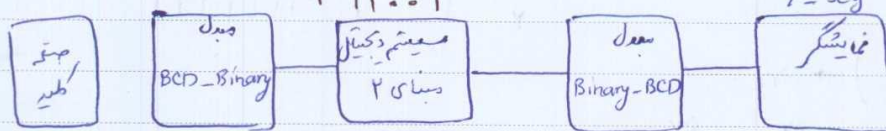 صفحه کلید
مبدل BCD_Binary
سیستم دیجیتال مبنای ۲
مبدل Binary_BCD
نمایشگر